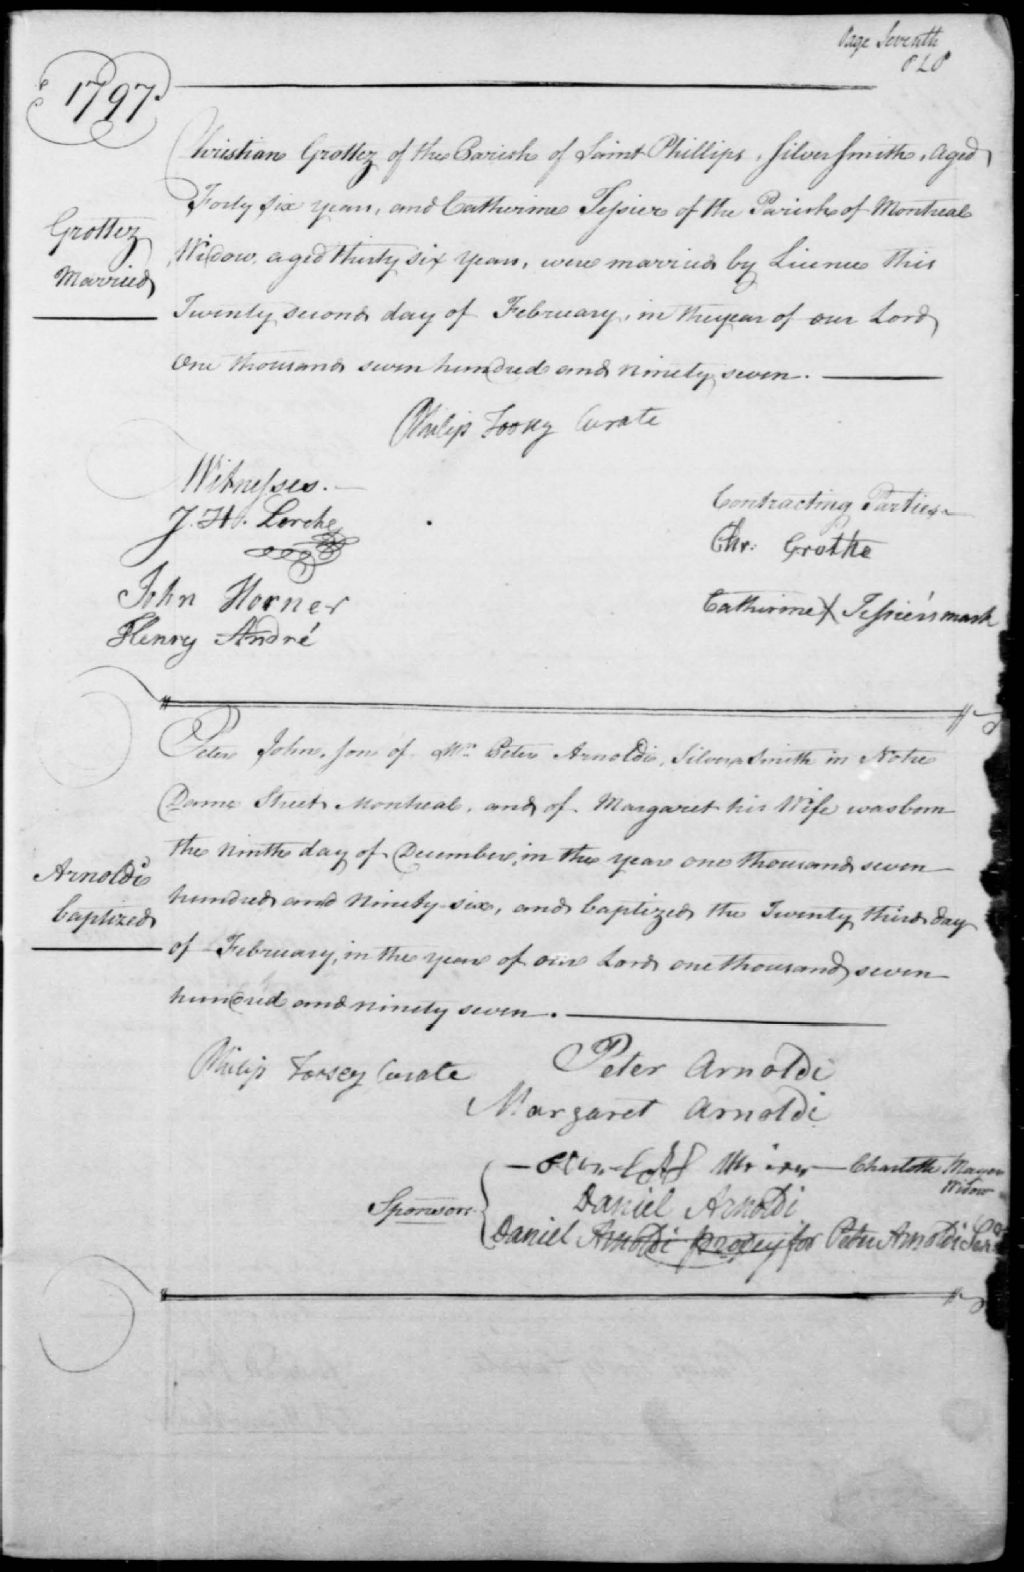 Page Seventh
P L P
1797.
Christian Grottez of the Parish of Saint Phillips, Silver Smith, aged
Forty Six years, and Catherine Tessier of the Parish of Montreal
Grottez
Widow, aged thirty six years, were married by Licence this
Married
Twenty second day of February, in the year of our Lord
One thousand seven hundred and ninety seven.
Philip Toosey Curate
Witnesses.
Contracting Parties
J. H. Lerche
Chr. Grothe
John Horner
Catherine X Tessier's mark
Henry André
Peter John, Son of Mr. Peter Arnoldi, Silver Smith in Notre
Dame Street Montreal, and of Margaret his Wife was born
the ninth day of December, in the year one thousand seven
Arnoldi
hundred and ninety-six, and baptized the Twenty third day
baptized
of February, in the year of our Lord one thousand seven
hundred and ninety seven.
Philip Toosey Curate
Peter Arnoldi
Margaret Arnoldi
Charlotte
Widow
Sponsors
Daniel Arnoldi
Daniel Arnoldi proxey for Peter Arnoldi